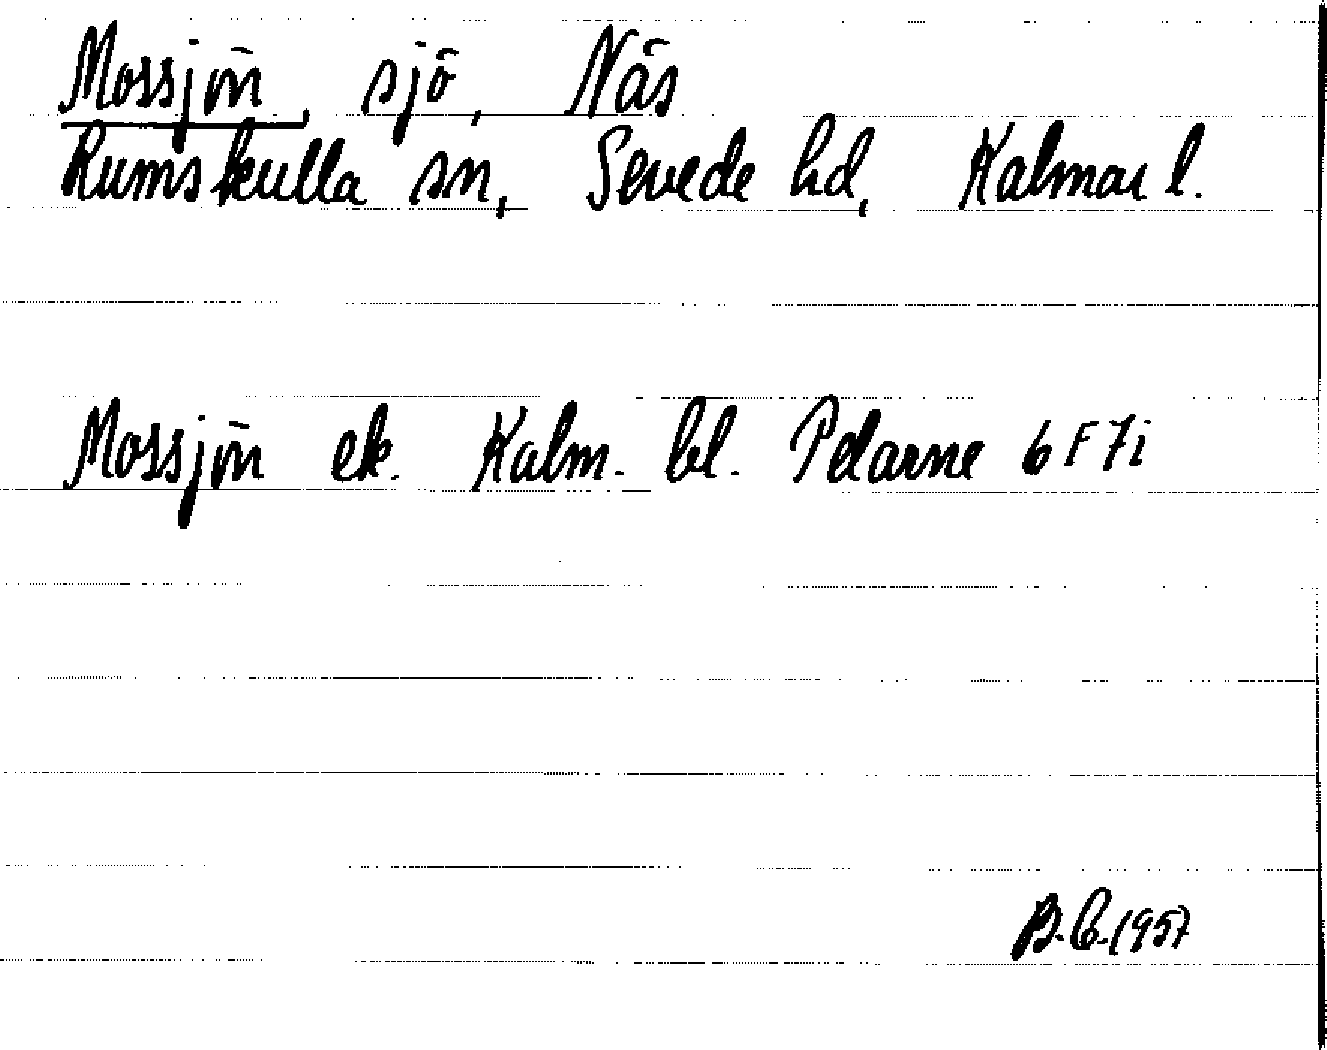 Mossjön, sjö, Näs
Rumskulla sn, Sevede hd, Kalmar l.
Mossjön ek. Kalm. bl. Pelarne 6F7i
B.C. 1957